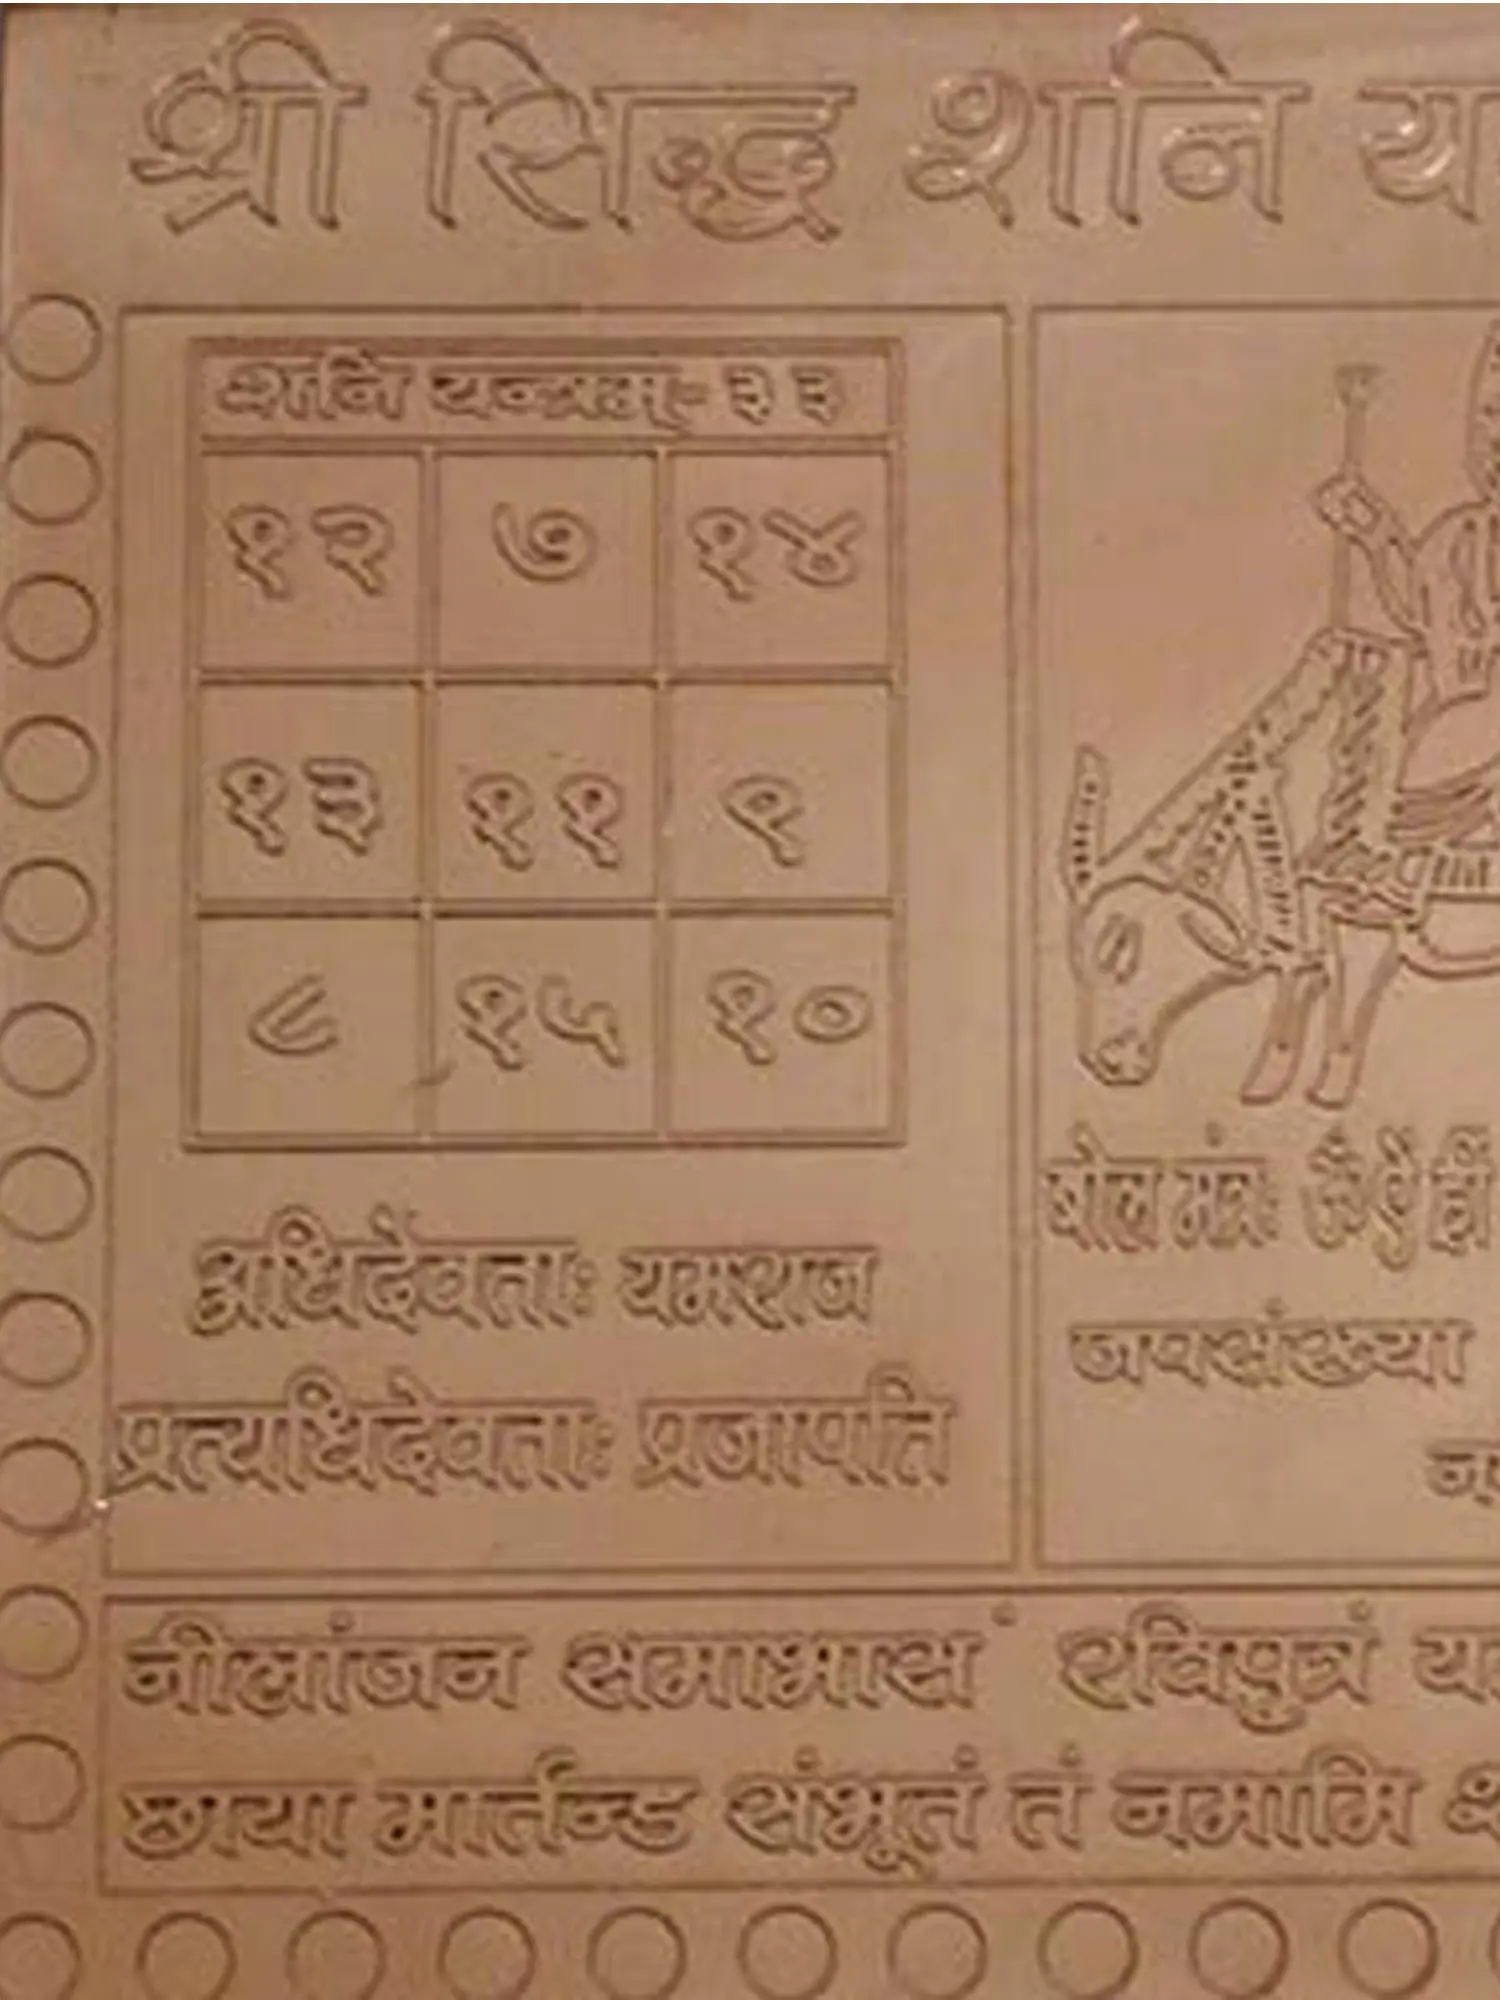 श्री सिद्ध शनि य
शनि यन्त्रम्- ३३
१२ ७ १४
१३ ११ ९
८ १५ १०
अधिदेवताः यमराज
प्रत्यधिदेवताः प्रजापति
मंत्रः ॐ
जपसंख्या
नीलांजन समाभासं रविपुत्रं
छाया मार्तन्ड संभूतं तं नमामि